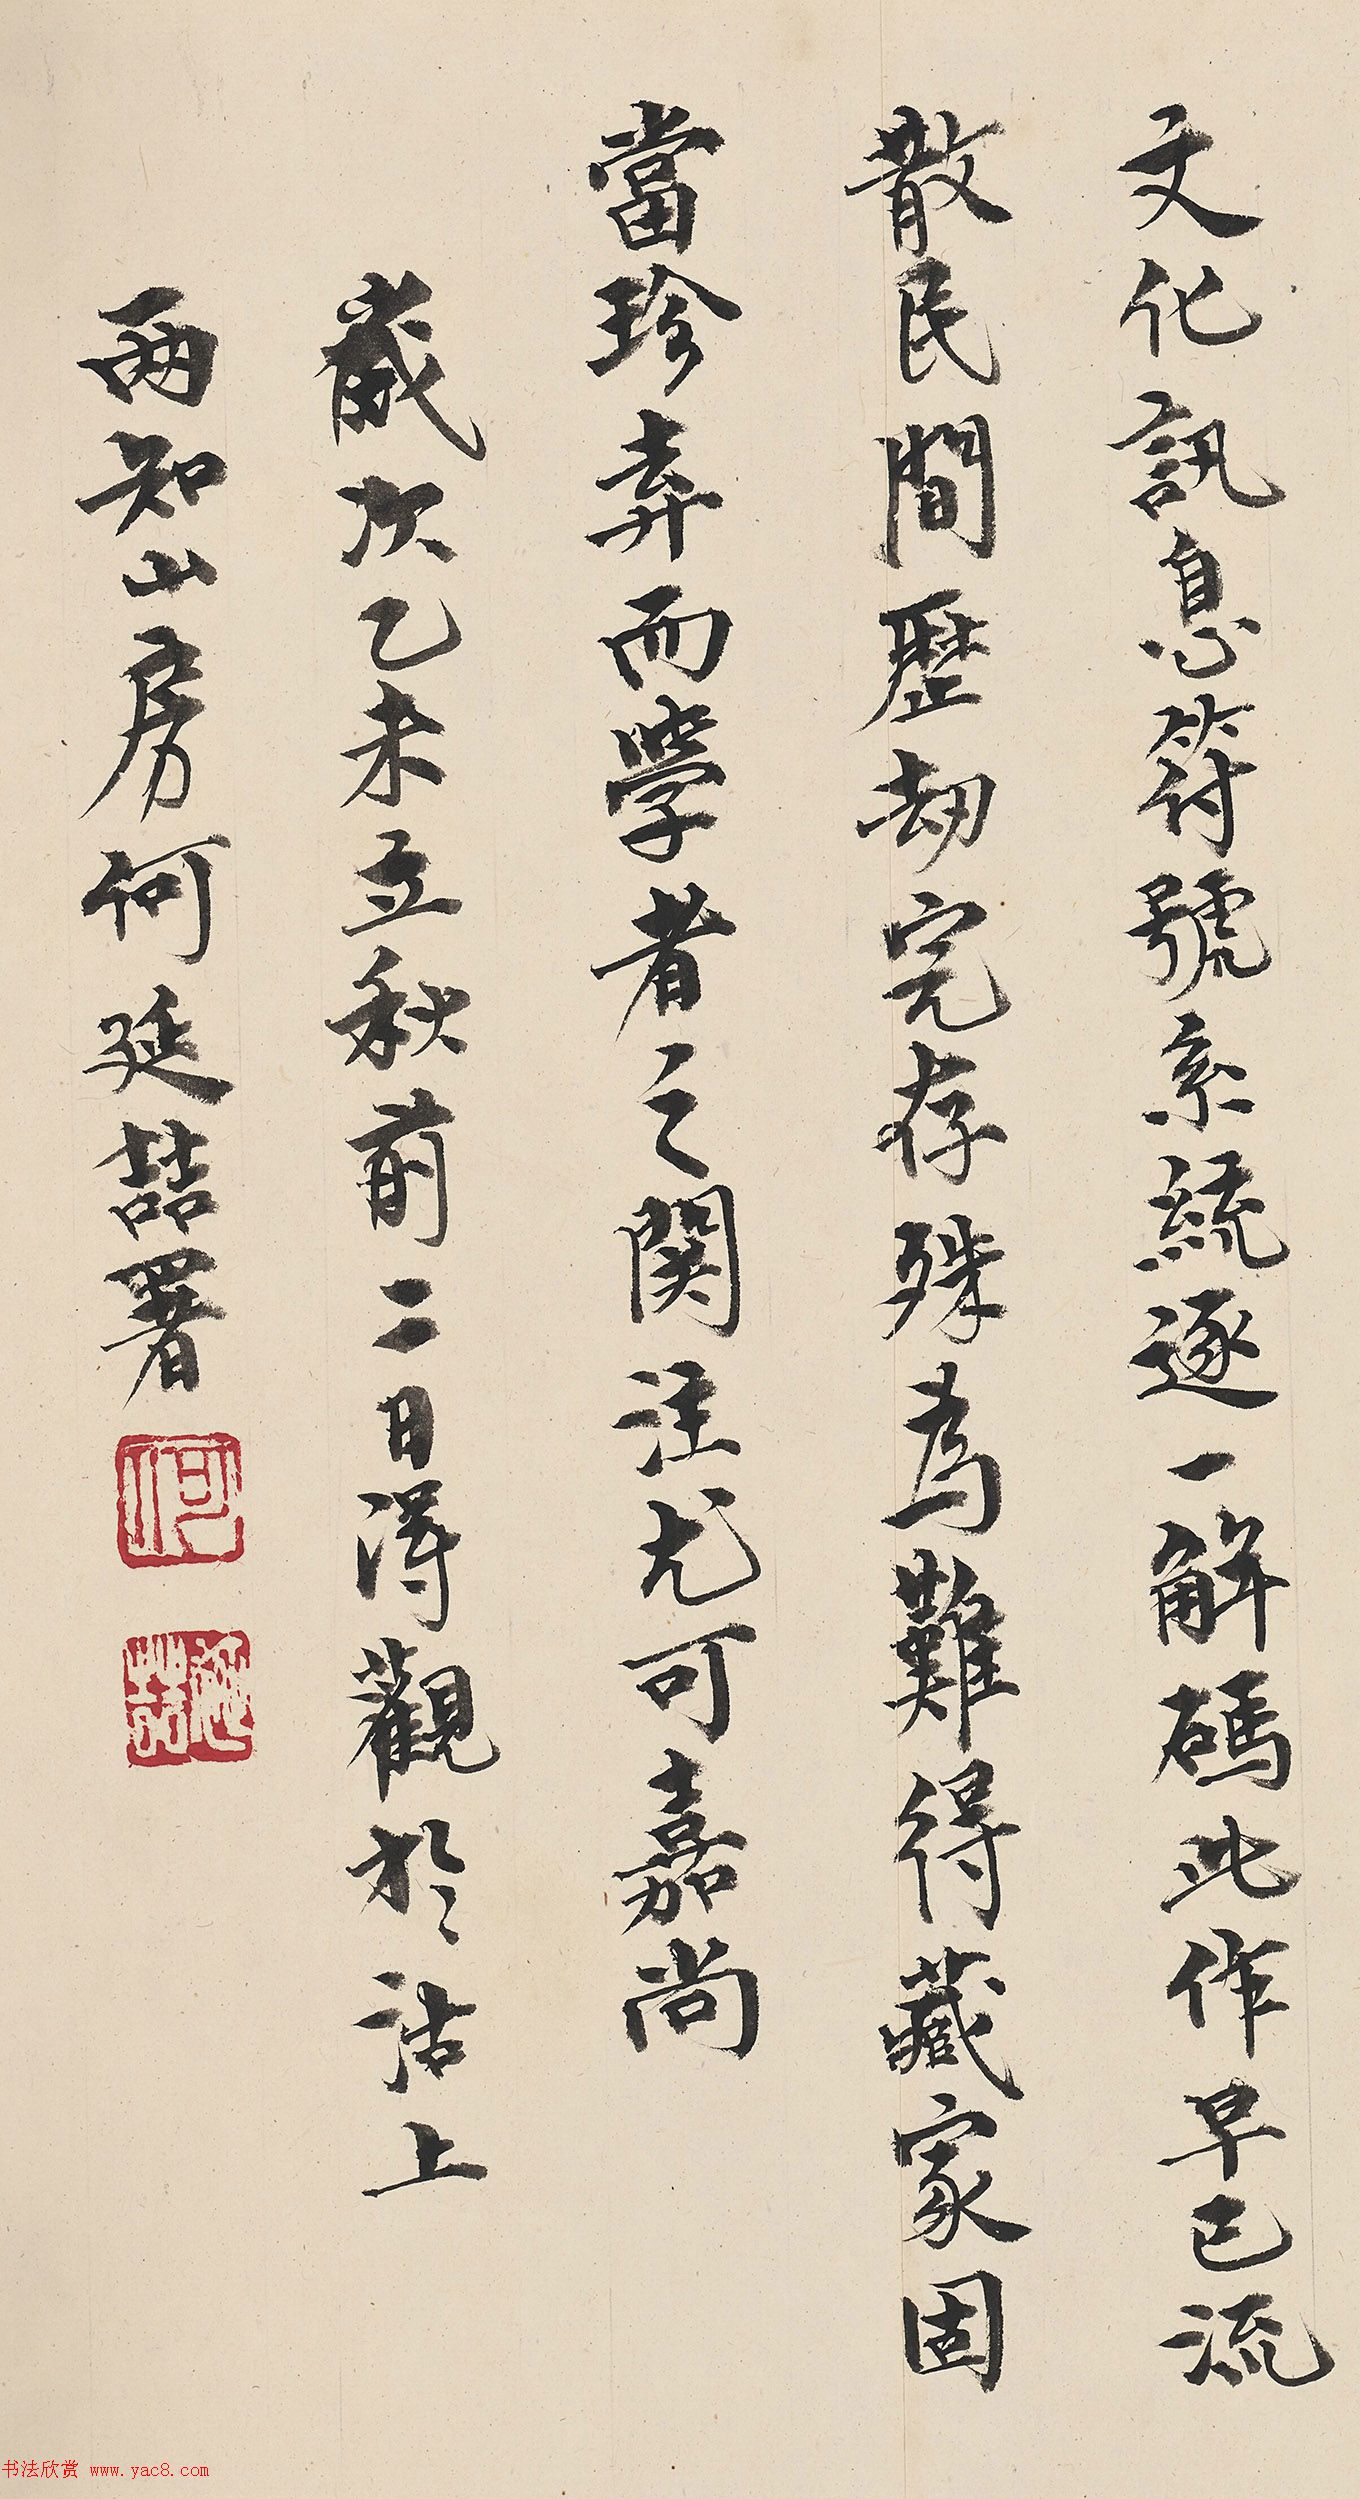 文化訊息符號系統逐一解碼此作早已流
散民間歷劫完存殊為難得藏家固
當珍弆而學者之関注尤可嘉尚
歲次乙未立秋前二日得觀於沽上
兩知山房何延喆署
何
延喆
书法欣赏 www.yac8.com